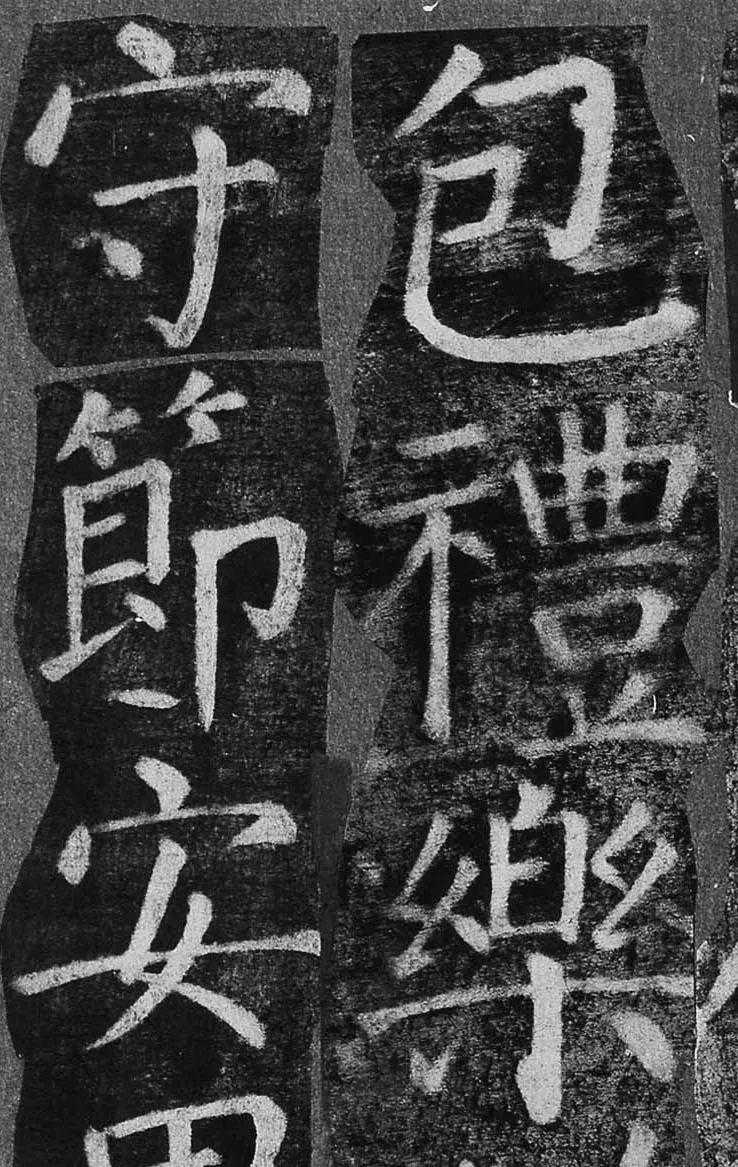 包禮樂
守節安